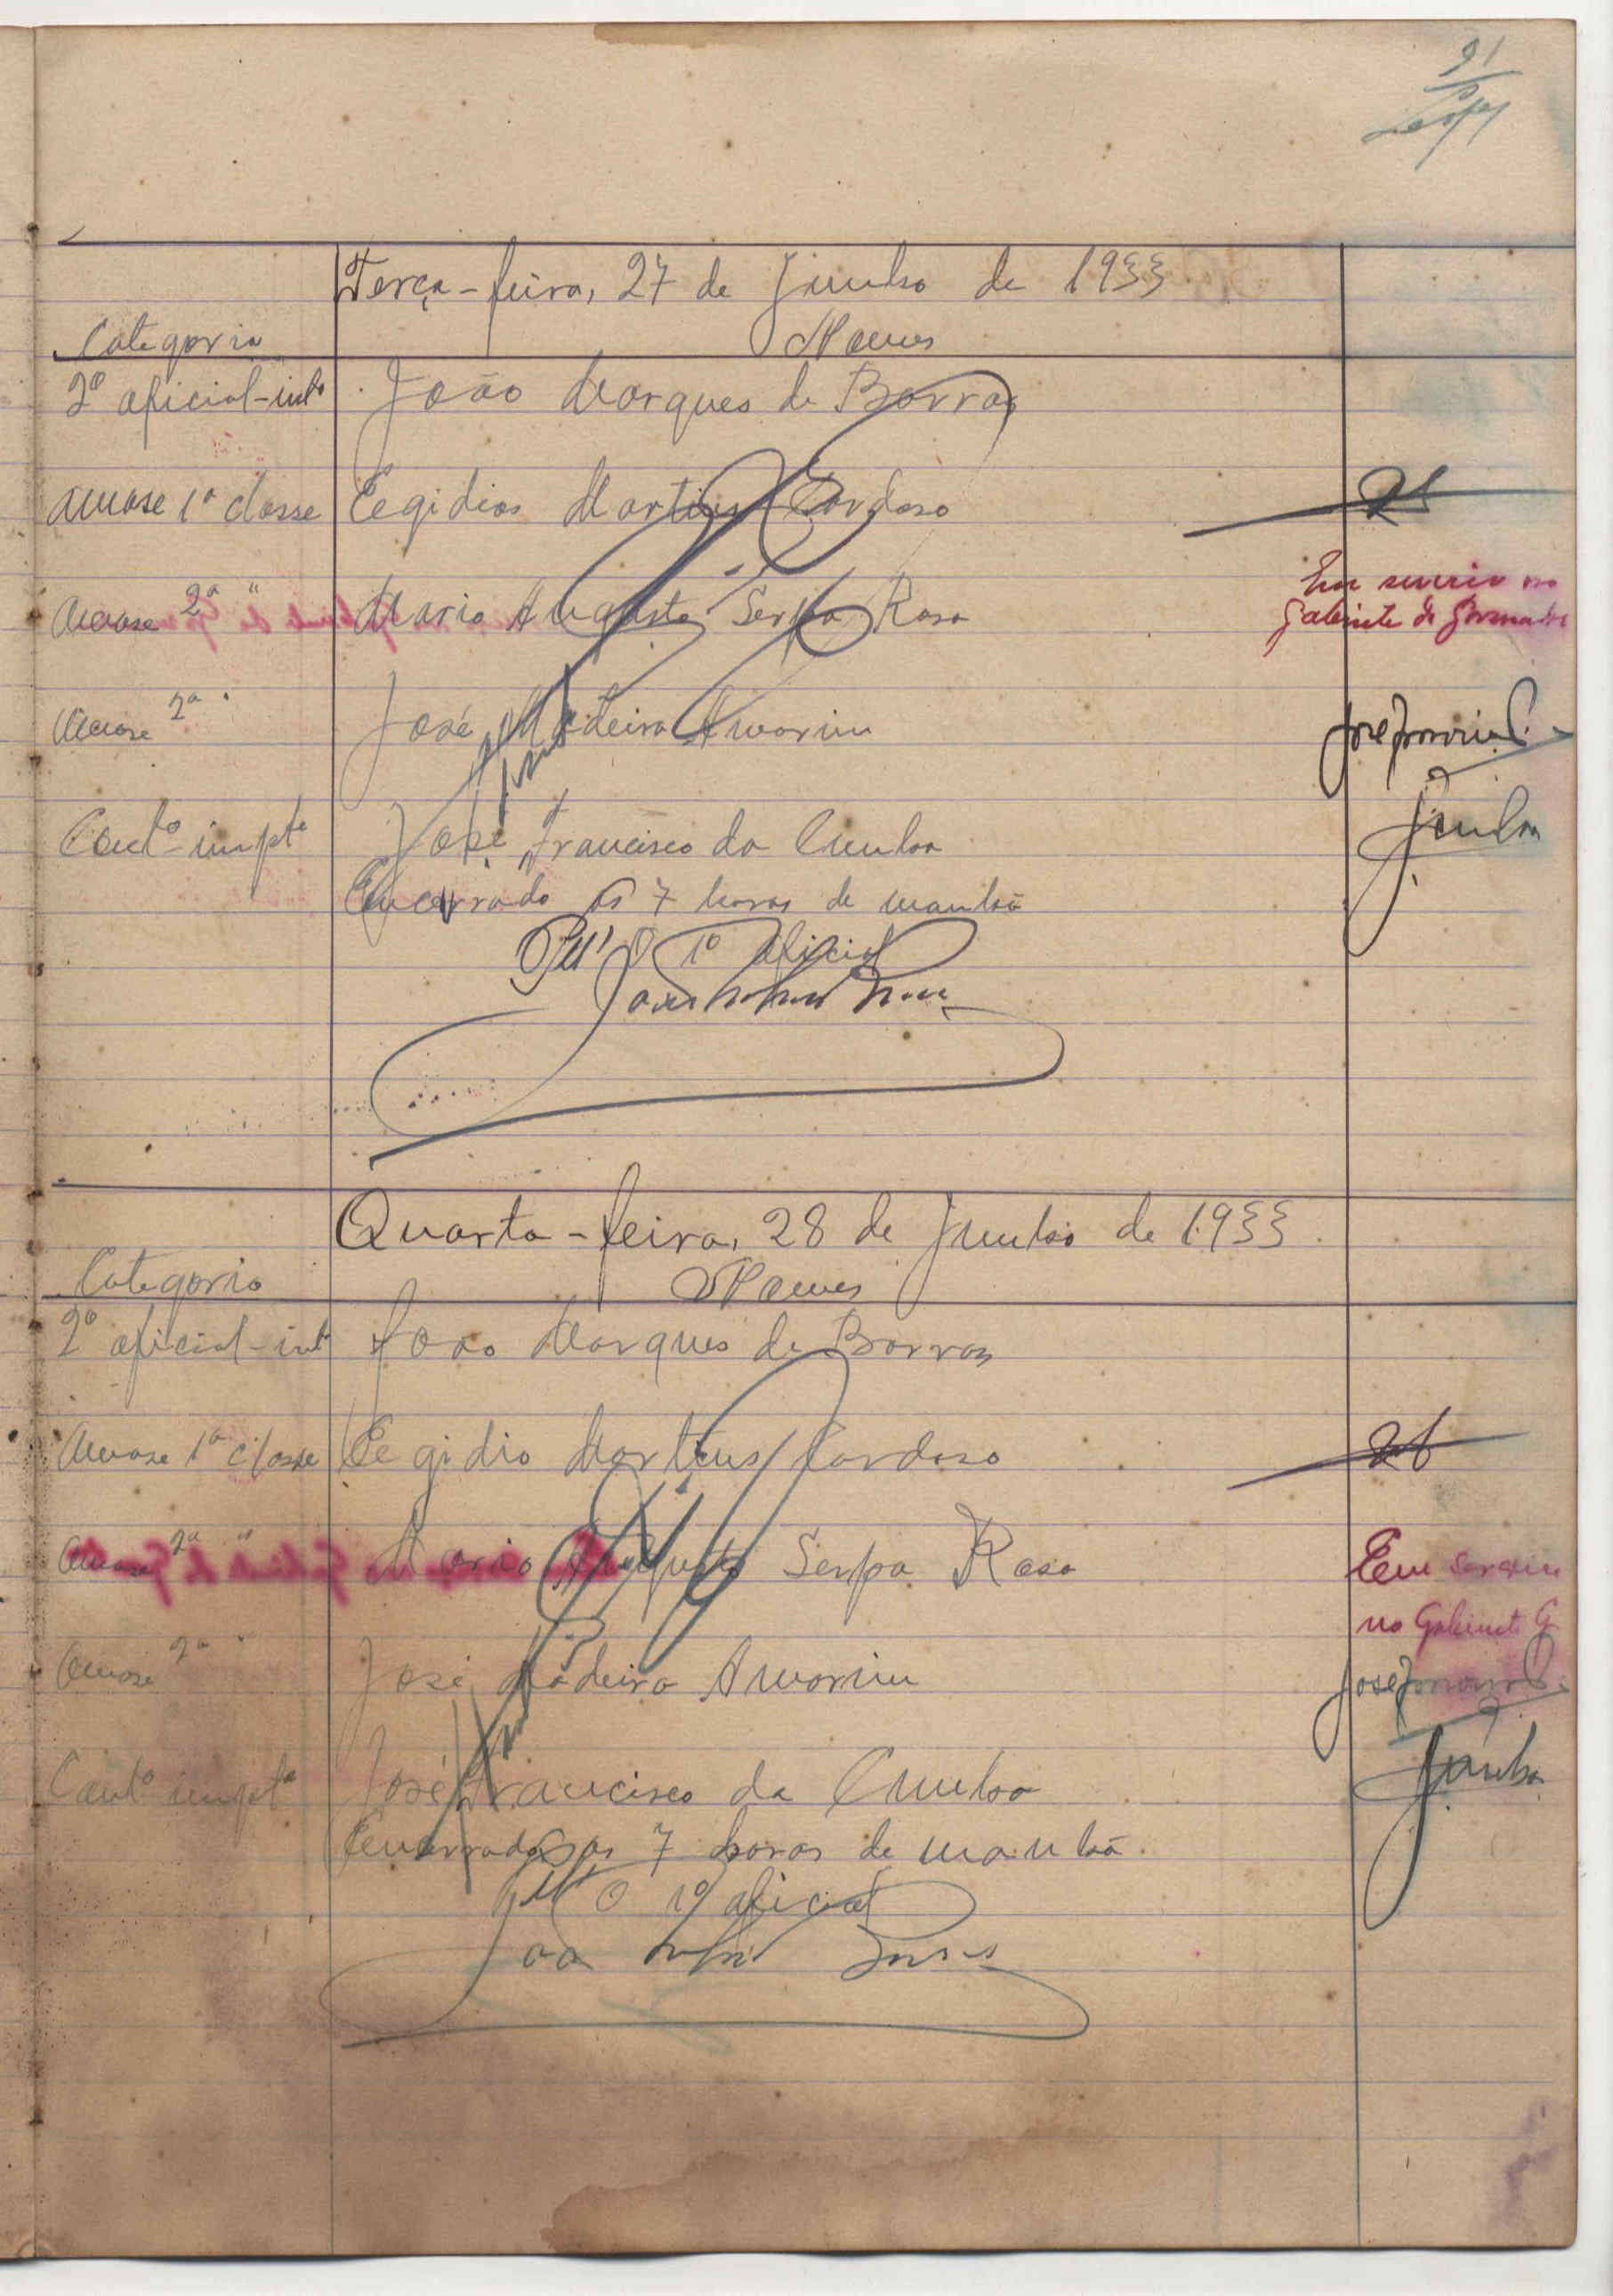 91
Terça-feira, 27 de Junho de 1933
Categoria Nomes
2º oficial-intº João Marques de Barros
1ª classe Eegidios Martins Cardoso 25
2ª " Mario Augusto Serpa Rosa Em serviço no
Gabinete do Governador
2ª " José Madeira Amorim José Amorim
Contº impte José Francisco da Cunha JCunha
Encerrado ás 7 horas de manhã
O 1º oficial
Quarta-feira, 28 de Junho de 1933.
Categoria Nomes
2º oficial-intº João Marques de Barros
1ª classe Eegidio Martins Cardoso 26
2ª " Mario Augusto Serpa Rosa Em serviço
no Gabinete G.
2ª " José Madeira Amorim José Amorim
Contº imptº José Francisco da Cunha JCunha
Encerrado ás 7 horas de manhã.
O 1º oficial